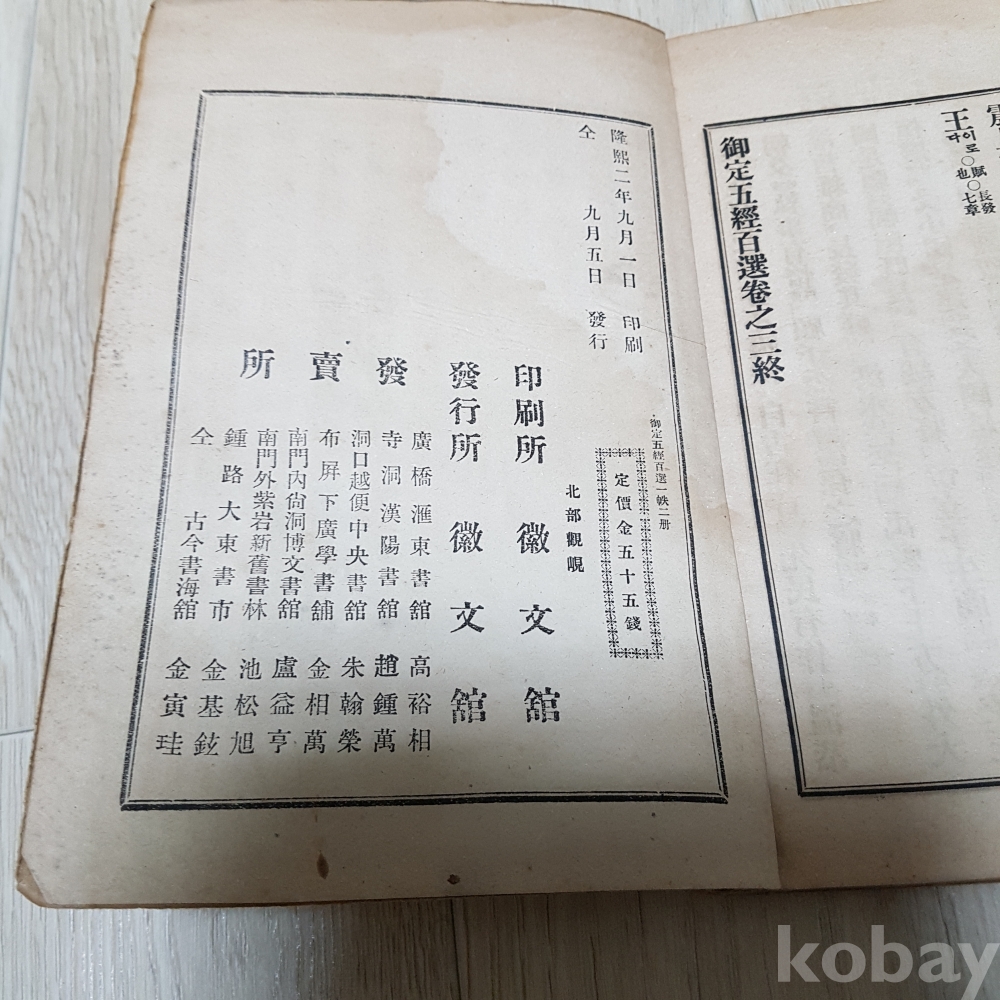 王
타이로○賦○長發
也 七章
御定五經百選卷之三終
隆熙二年九月一日 印刷
仝 九月五日 發行
御定五經百選一帙二册
定價金五十五錢
北部觀峴
印刷所 徽文舘
發行所 徽文舘
發賣所
廣橋滙東書舘 高裕相
寺洞漢陽書舘 趙鍾萬
洞口越便中央書舘 朱翰榮
布屛下廣學書舖 金相萬
南門內尙洞博文書舘 盧益亨
南門外紫岩新舊書林 池松旭
鍾路大東書市 金基鉉
仝 古今書海舘 金寅珪
kobay